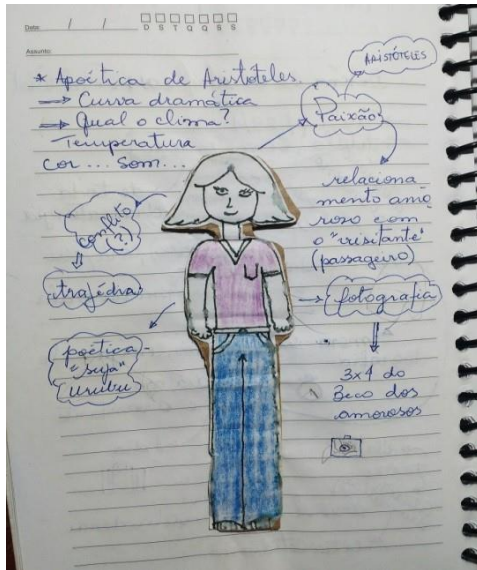 Data: / /
D S T Q Q S S
Assunto:
* Apoética de Aristóteles
⇒ Curva dramática
⇒ Qual o clima?
Temperatura
cor... Som...
ARISTÓTELES
Paixão
relaciona
mento amo
roso com
o "visitante"
(passageiro)
conflito
(?)
tragédia
poética-
"suja"
Urubu
fotografia
3x4 do
Beco dos
amorosos